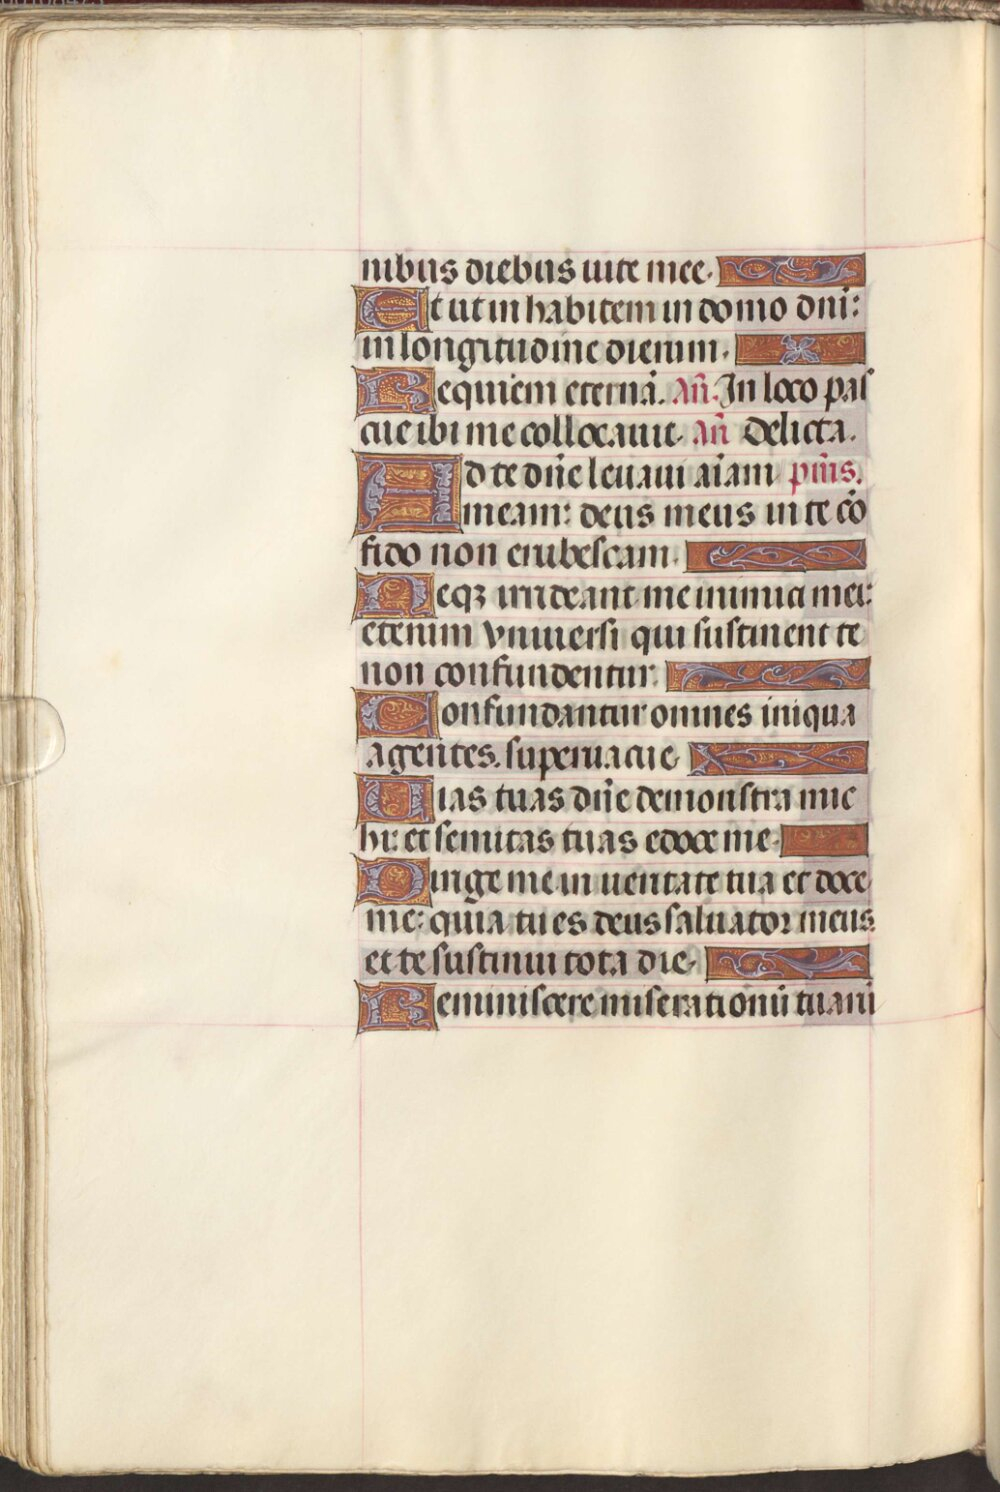 nibus diebus uite mee.
Et ut in habitem in domo dn̄i:
in longitudine dierum.
Requiem eternā. Añ. In loco pas
cue ibi me collocauit. añ Delicta.
Ad te dñe leuaui aīam pm̄s.
meam: deus meus in te cō
fido non erubescam.
Neqꝫ irrideant me inimici mei:
etenim vniuersi qui sustinent te
non confundentur.
Confundantur omnes iniqua
agentes. superuacue
Uias tuas dñe demonstra mic
hi: et semitas tuas edoce me.
Dirige me in ueritate tua et doce
me: quia tu es deus saluator meus.
et te sustinui tota die.
Reminiscere miserationū tuarū